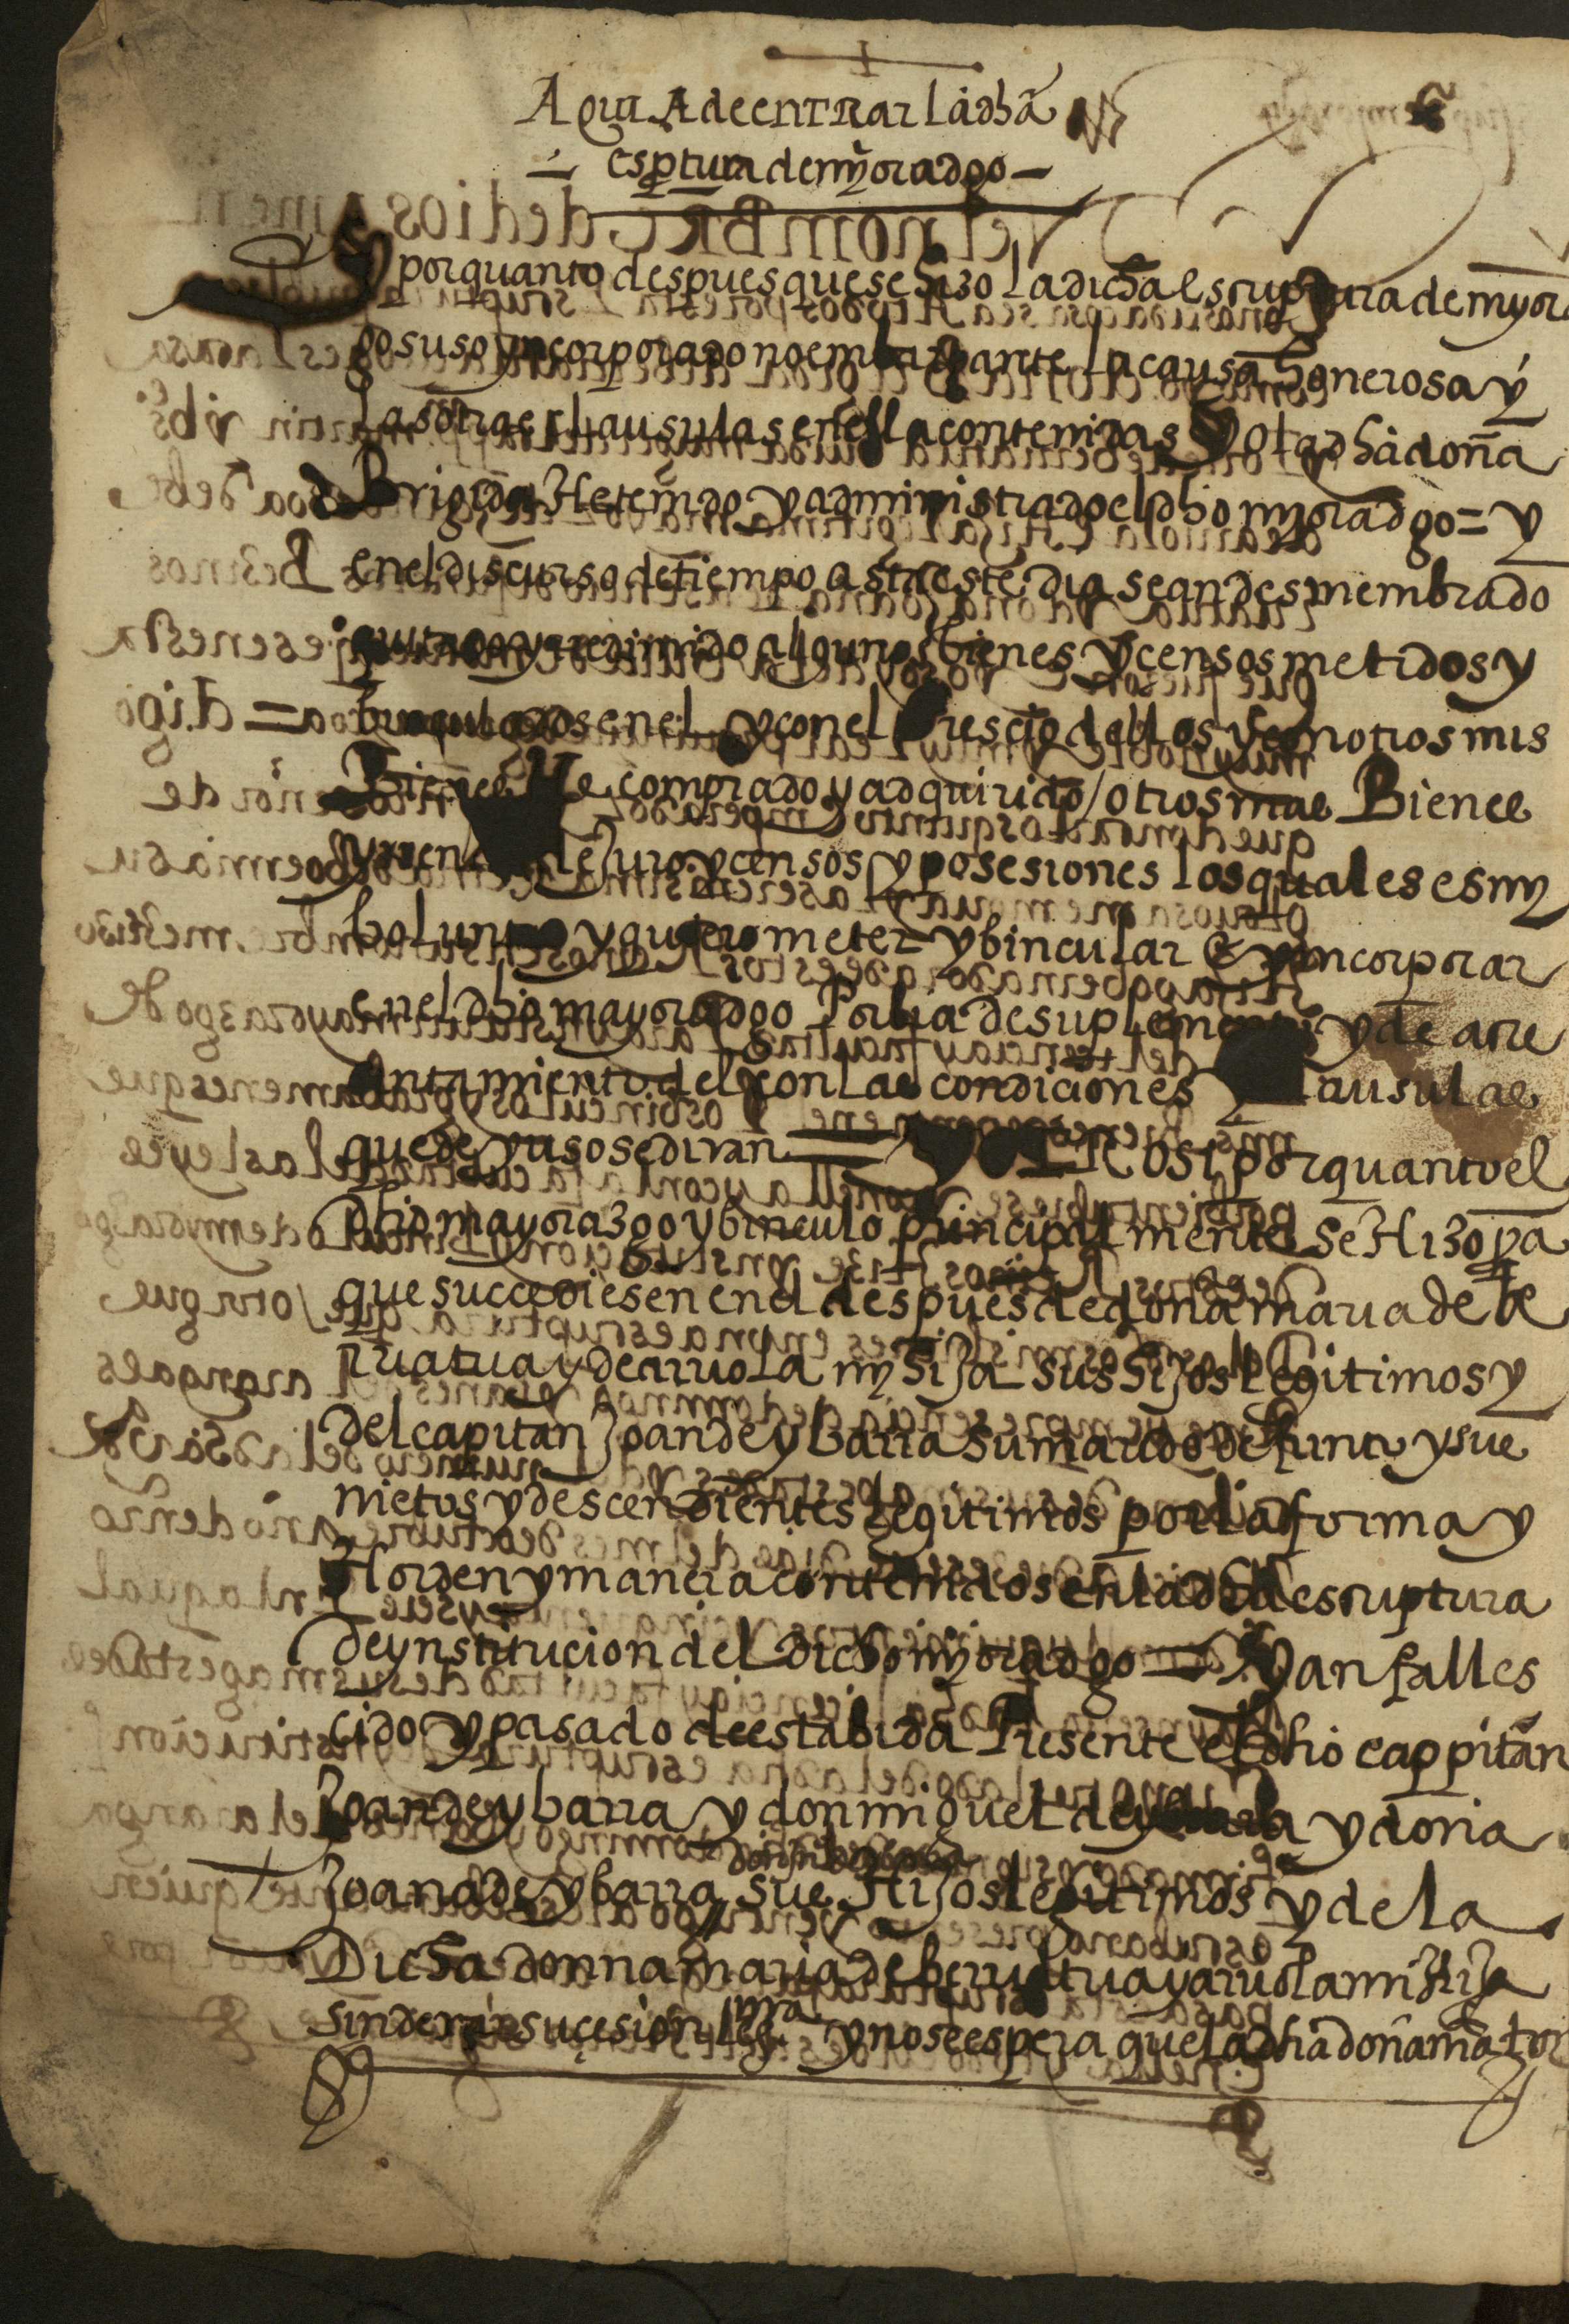 Aqui A de entrar la dhã
esptura de myoradgo
porquanto despues que se hizo la dicha escruptura de myora
go suso yncorporado no embargante la causa honerosa y
las otras clausulas en ella contenidas yo la dhã doña
Brigida He tenido y administrado el dho myoradgo = y
en el discurso de tiempo asta este dia se an desmembrado
quitado y redimido algunos bienes y censos metidos y
binculados en el y con el prescio dellos y con otros mis
Bienes He comprado y adquirido / otros mas Bienes
y rentas de Juro y censos y posesiones los quales es my
boluntad y quiero meter y bincular E yncorporar
en el dho mayoradgo Por bia de suplemento y de acre
entamiento del con las condiciones y clausulas
que de yuso se diran = yot Rosi porquanto el
dho mayorazgo y binculo principalmente se Hizo pa
que succediesen en el despues de doña maria de be
rriatua y de arriola my hija sus hijos legitimos y
del capitan Joan de ybarra su marido defunto y sus
nietos y descendientes legitimos por la forma y
Horden y manera contenidos en la dha escruptura
de ynstitucion del dicho myoradgo = y an falles
cido y pasado de esta bida Presente el dho cappitan
Joan de ybarra y don miguel de ybarra y doña
Joana de ybarra sus Hijos legitimos y de la
Dicha donna maria de berriatua y arriola mi Hija
sin dexar sucesion leg.ma y no se espera que la dha doña ma tor